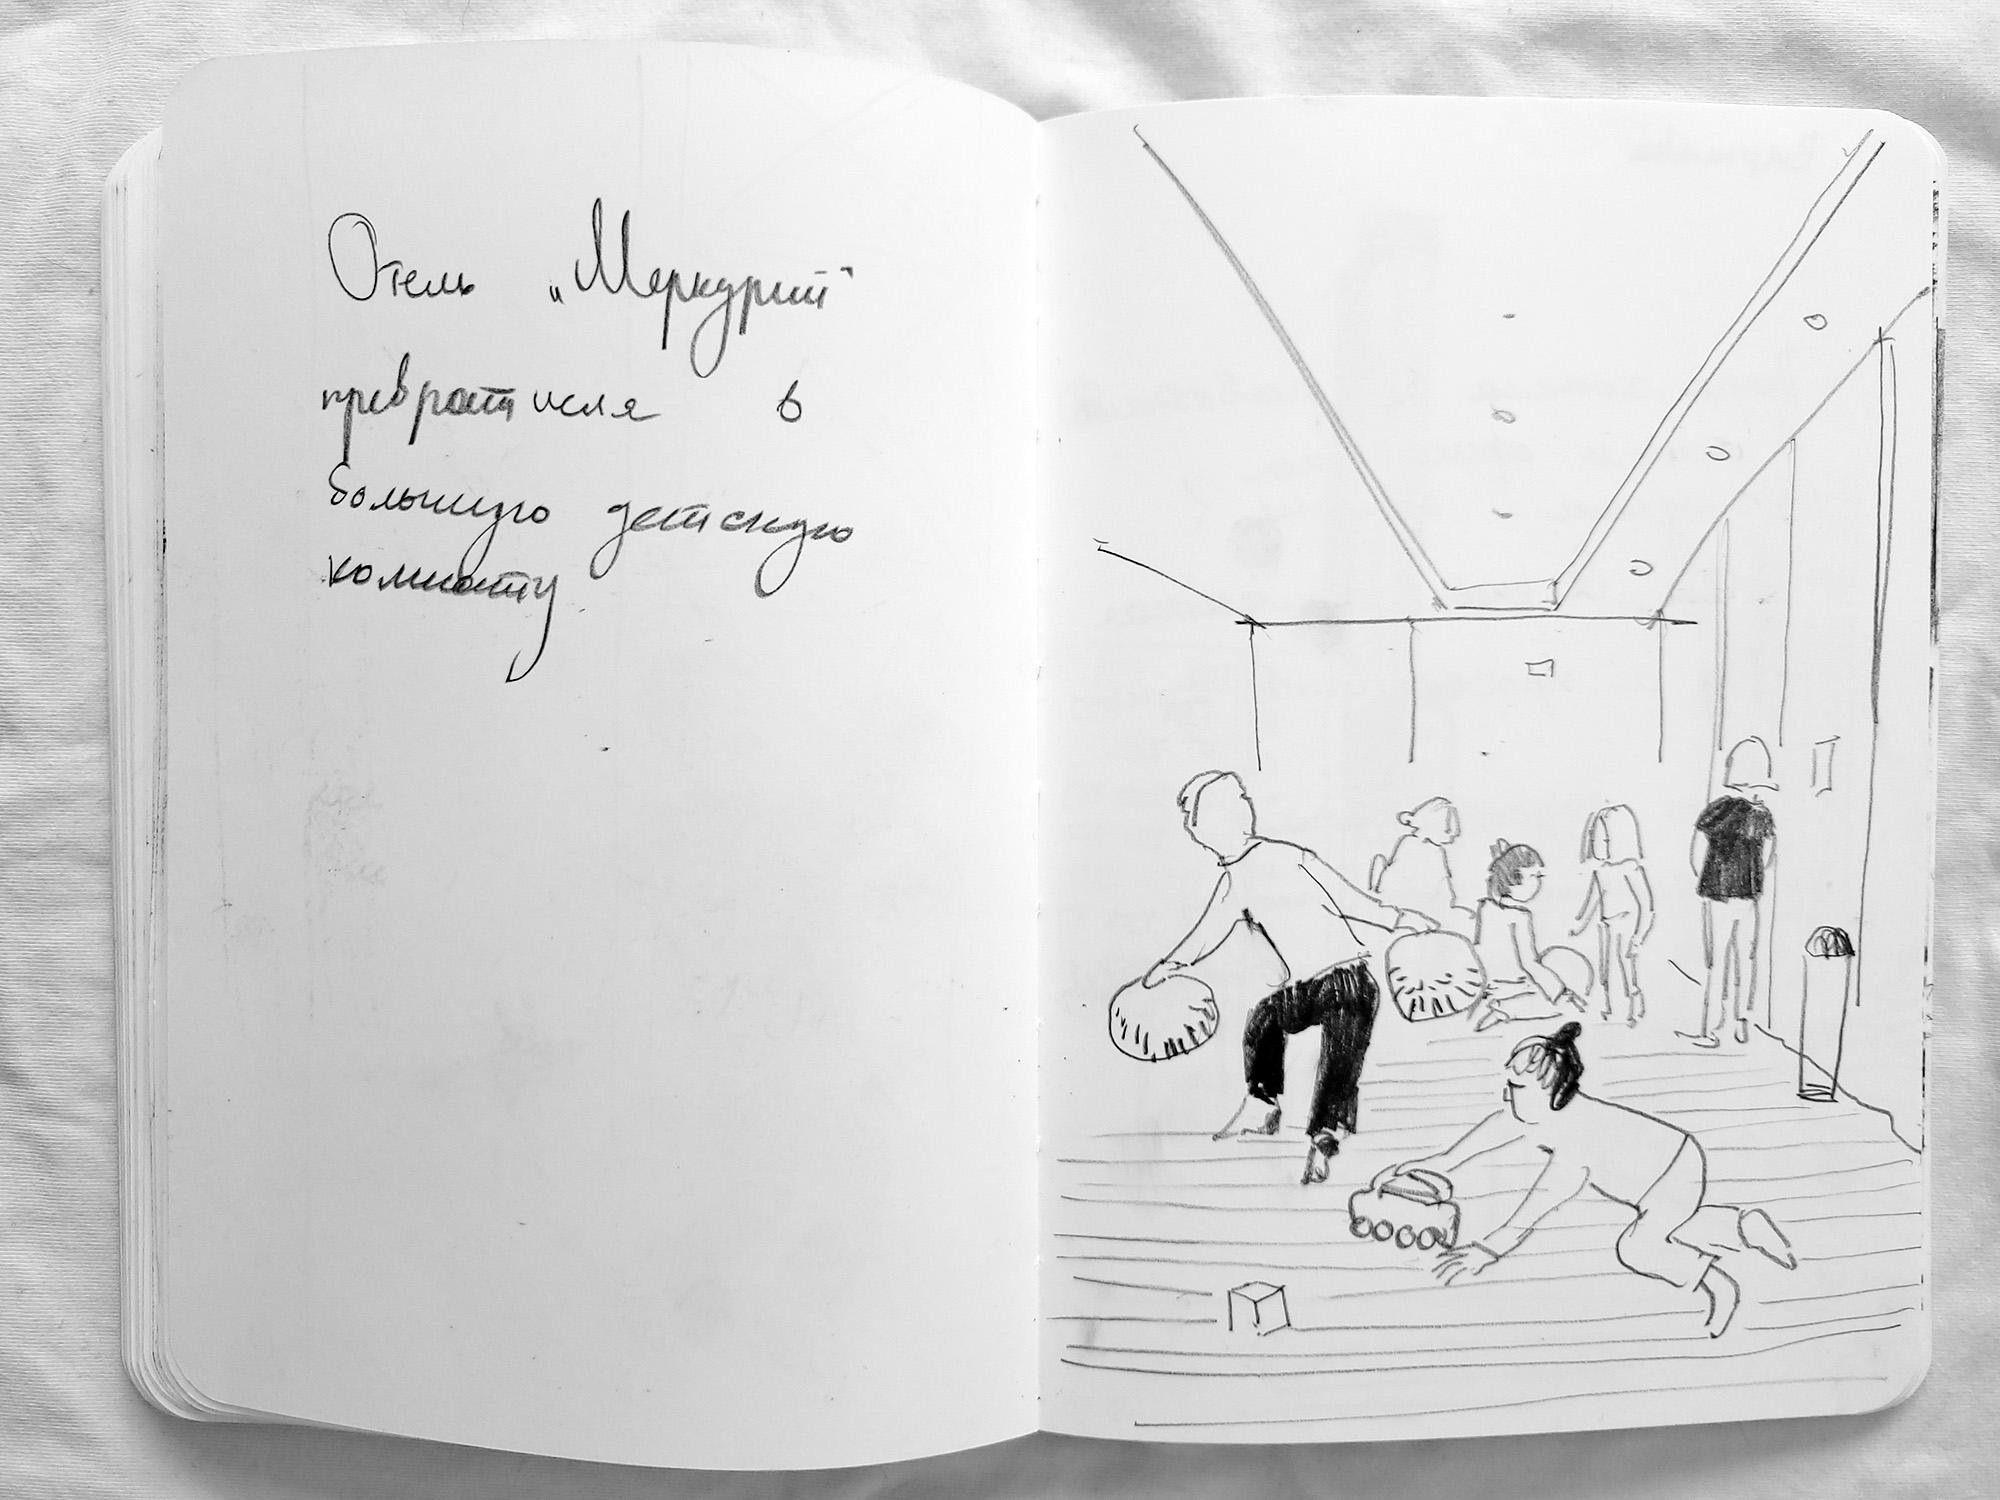 Отель „Меркурий“
превратился в
большую детскую
комнату